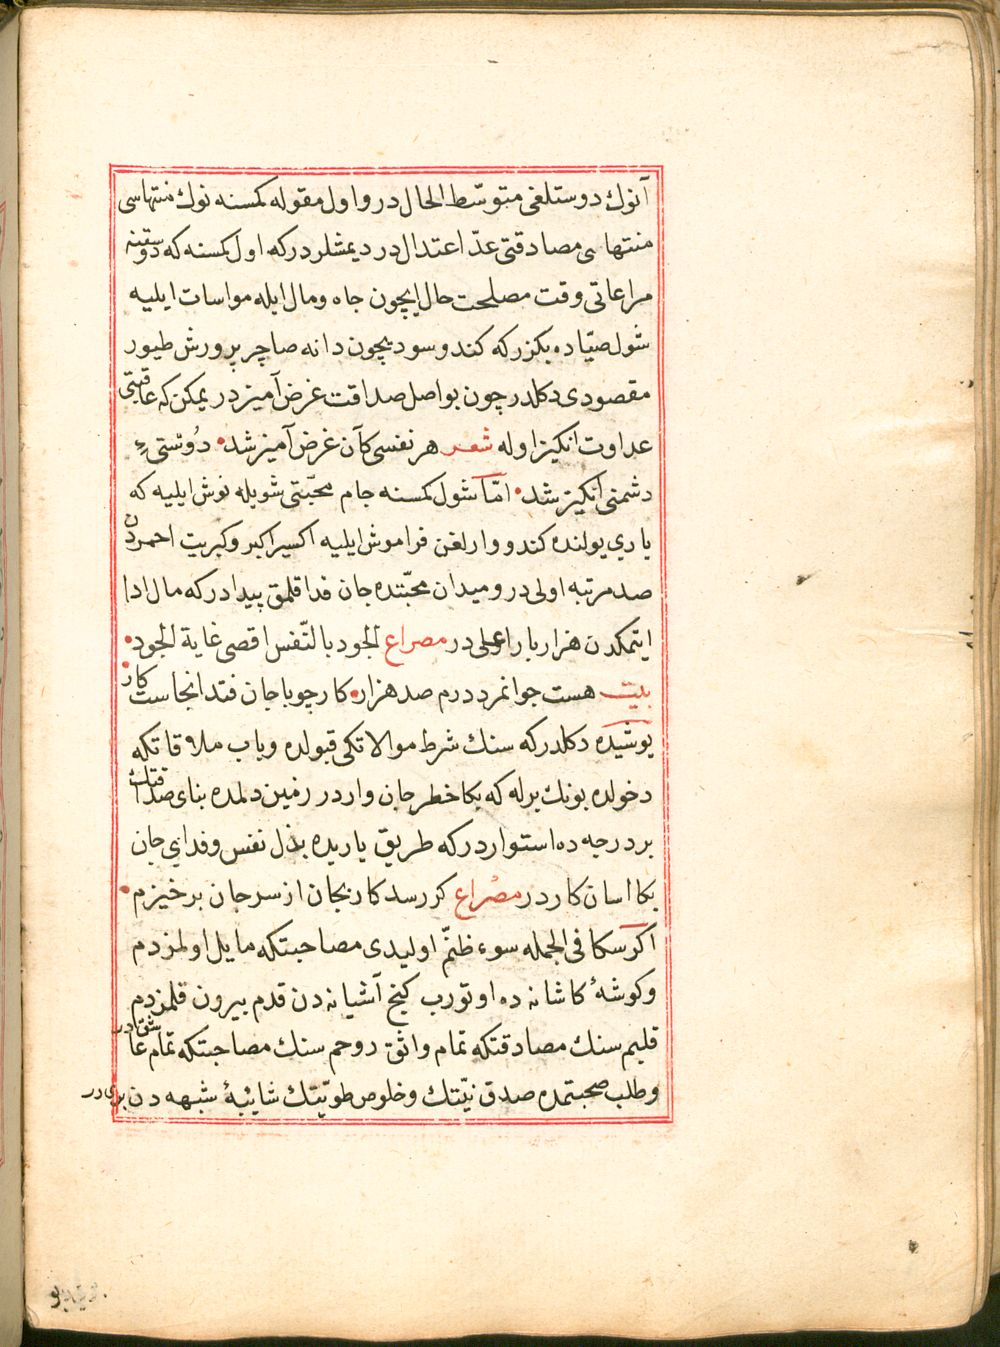 آنوك دوستلغی متوسّط الحال در و اول مقوله كمسنه نوك منتهاسی
منتهاسی مصادقتی عدّ اعتدال در دیمشلردر كه اول كمسنه كه دوستنه
مراعاتی وقت مصلحت حال ایچون جاه و مال ایله مواسات ایلیه
شول صیّاده بكزر كه كندو سودیچون دانه صاچر پرورش طیور
مقصودی دكلدر چون بو اصل صداقت غرض آمیزدر یمكن كه عاقبتی
عداوت انكیز اوله شعر هر نفسی كآن غرض آمیز شد • دُوستیءِ
دشمنی انكیز شد • امّا شول كمسنه جام محبّتی شویله نوش ایلیه كه
یاری یولنده كندو وارلغن فراموش ایلیه اكسیر اكبر و كبریت احمردن
صد مرتبه اولی در و میدان محبّتده جان فدا قلمق پیدادر كه مال ادا
ایتمكدن هزار بار اعلی در مصراع الجود بالنّفس اقصی غایة الجود •
بیت هست جوانمرد درم صد هزار • كار چو با جان فتد انجاست كار •
پوشیده دكلدر كه سنك شرط موالاتكی قبولده و باب ملاقاتكه
دخولده بونك برله كه بكا خطر جان واردر زمین دلمده بنای صداقتك
بر درجه ده استواردر كه طریق یاریده بذل نفس و فدای جان
بكا اسان كاردر مصراع كر رسد كار بجان از سر جان برخیزم •
اكر سكا فی الجمله سوء ظنّم اولیدی مصاحبتكه مایل اولمزدم
و كوشهٔ كاشانه ده اوتورب كنج آشیانه دن قدم بیرون قلمزدم
قلبم سنك مصادقتكه تمام واثق روحم سنك مصاحبتكه تمام عاشقدر
و طلب صحبتمده صدق نیّتك و خلوص طویّتك شائبهٔ شبهه دن بری در